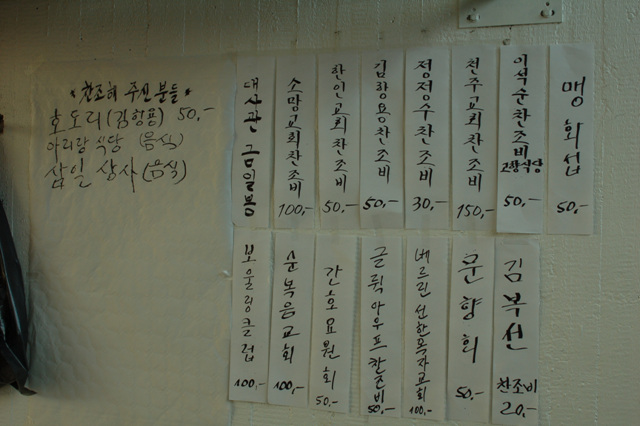 찬조해 주신 분들
호도리(김항용) 50,-
아리랑 식당 (음식)
삼일 상사 (음식)
대사관 금일봉
소망교회찬조비 100,-
한인교회찬조비 50,-
김항용찬조비 50,-
정정수찬조비 30,-
천주교회찬조비 150,-
이석순찬조비 고향식당 50,-
맹회섭 50,-
보울링클럽 100,-
순복음교회 100,-
간호요원회 50,-
글뤽아우프찬조비 50,-
베르린선한목자교회 100,-
문향회 50,-
김부선 찬조비 20,-